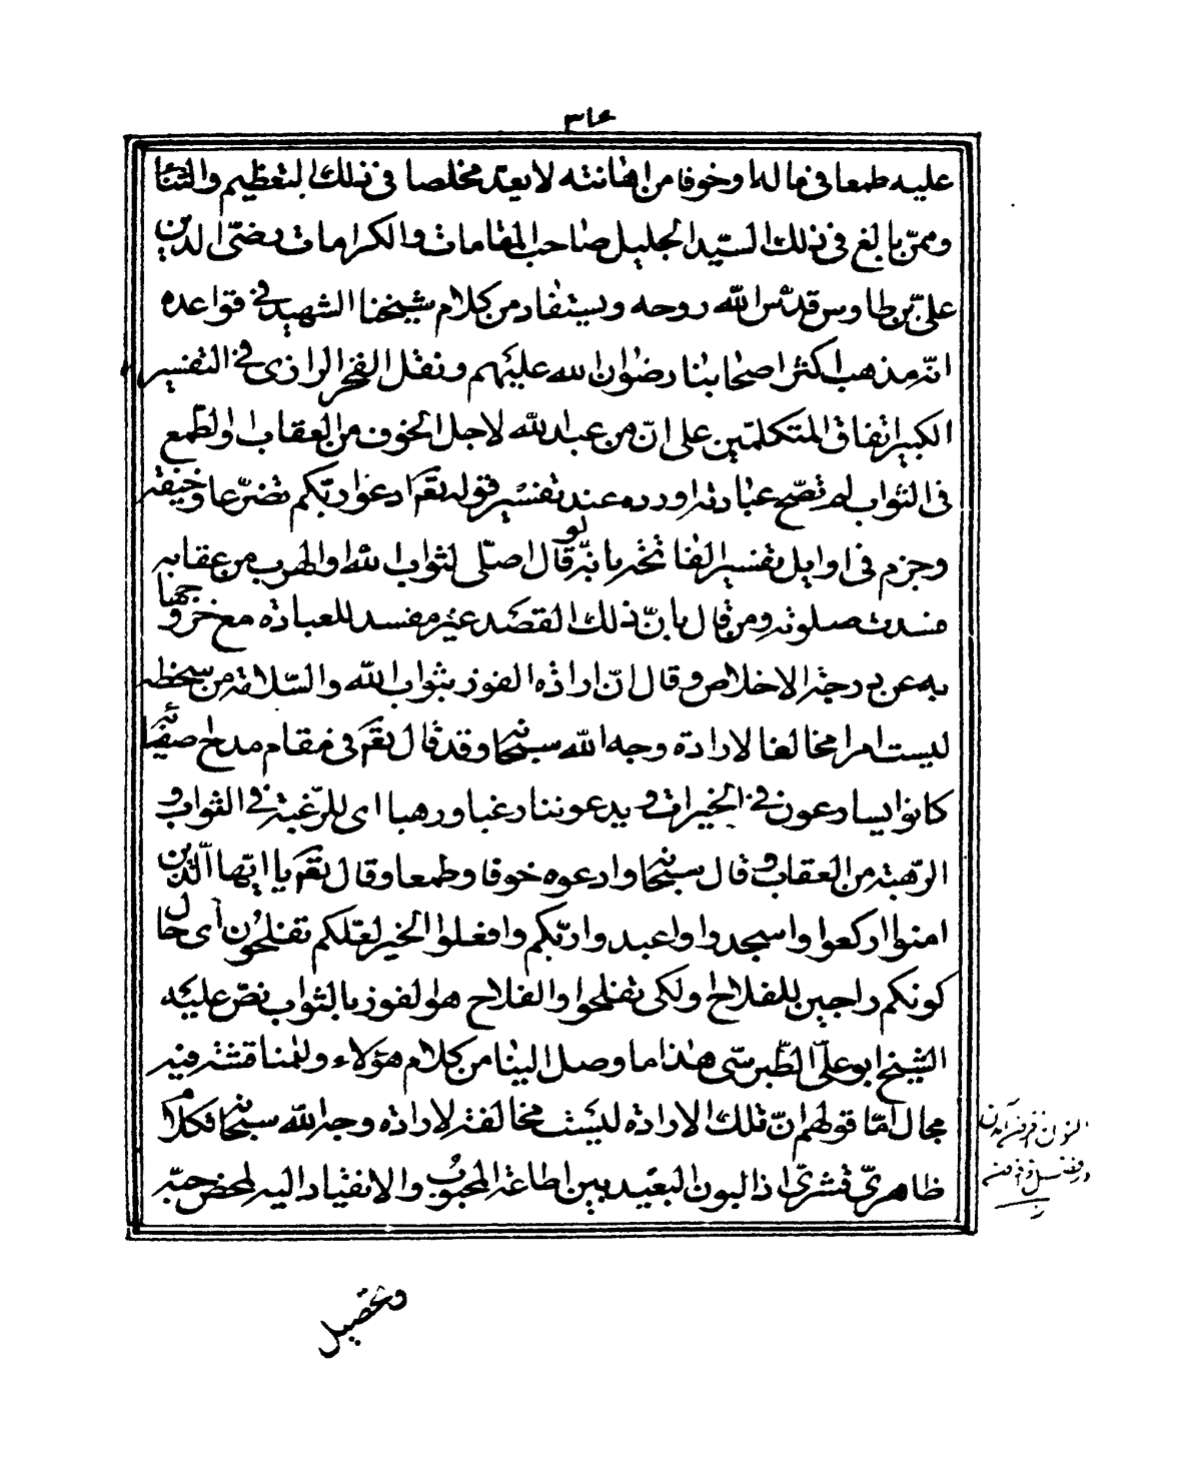 ٣١٤
عليه طمعا في ماله او خوفا من اهانته لا يعد مخلصا في ذلك التعظيم والثناء
وممن بالغ في ذلك السيد الجليل صاحب المقامات والكرامات رضى الدين
على بن طاوس قدس الله روحه ويستفاد من كلام شيخنا الشهيد في قواعده
انه مذهب اكثر اصحابنا رضوان الله عليهم ونقل الفخر الرازى في التفسير
الكبير اتفاق المتكلمين على ان من عبد الله لاجل الخوف من العقاب او الطمع
في الثواب لم تصح عبادته اورده عند تفسير قوله تعم ادعوا ربكم تضرعا وخيفة
وجزم في اوايل تفسير الفاتحه بانه لو قال اصلى لثواب الله او الهرب من عقابه
فسدت صلوته ومن قال بان ذلك القصد غير مفسد للعبادة منع خروجها
به عن درجة الاخلاص وقال ان ارادة الفوز بثواب الله والسلامة من سخطه
ليست امرا مخالفا لارادة وجه الله سبحانه وقد قال تعم في مقام مدح اصفيائه
كانوا يسارعون في الخيرات و يدعوننا رغبا ورهبا اى للرغبة في الثواب و
الرهبة من العقاب و قال سبحانه وادعوه خوفا وطمعا وقال تعم يا ايها الذين
امنوا اركعوا واسجدوا واعبدوا ربكم وافعلوا الخير لعلكم تفلحون اى حال
كونكم راجين للفلاح او لكى تفلحوا والفلاح هو الفوز بالثواب نص عليه
الشيخ ابو على الطبرسى هذا ما وصل الينا من كلام هؤلاء وللمناقشة فيه
مجال اما قولهم ان تلك الارادة ليست مخالفة لارادة وجه الله سبحانه فكلام
ظاهرى قشرى اذ البون البعيد بين اطاعة المحبوب والانقياد اليه لمحض حبه
وتحصيل